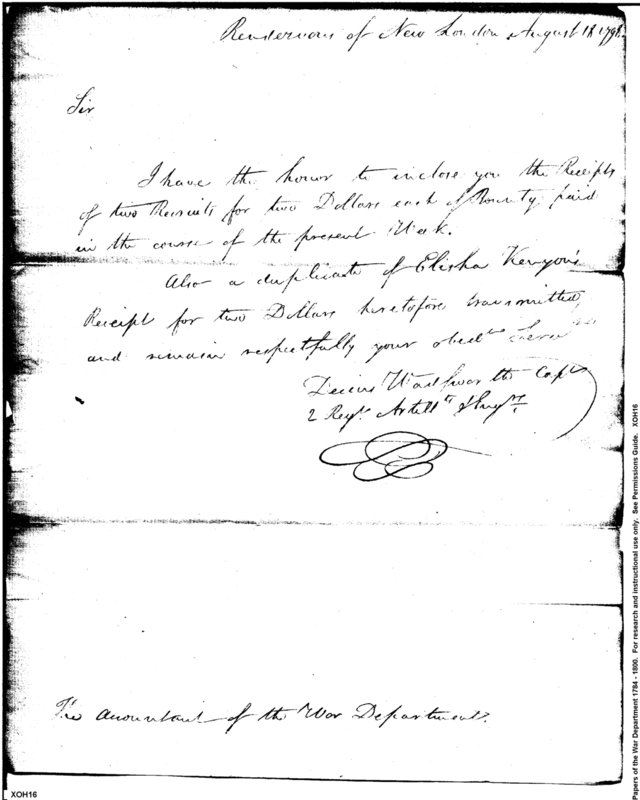 Rendezvous of New London August 18 1798.
Sir
I have the honor to inclose you the Receipts
of two Recruits for two Dollars each of Bounty paid
in the course of the present Week.
Also a duplicate of Elisha Kenyon's
Receipt for two Dollars heretofore transmitted
and remain respectfully your obedt Servt
Decius Wadsworth Capt
2 Regt. Artillts & Engrs.
The Accountant of the War Department.
Papers of the War Department 1784 - 1800. For research and instructional use only. See Permissions Guide. XOH16
XOH16